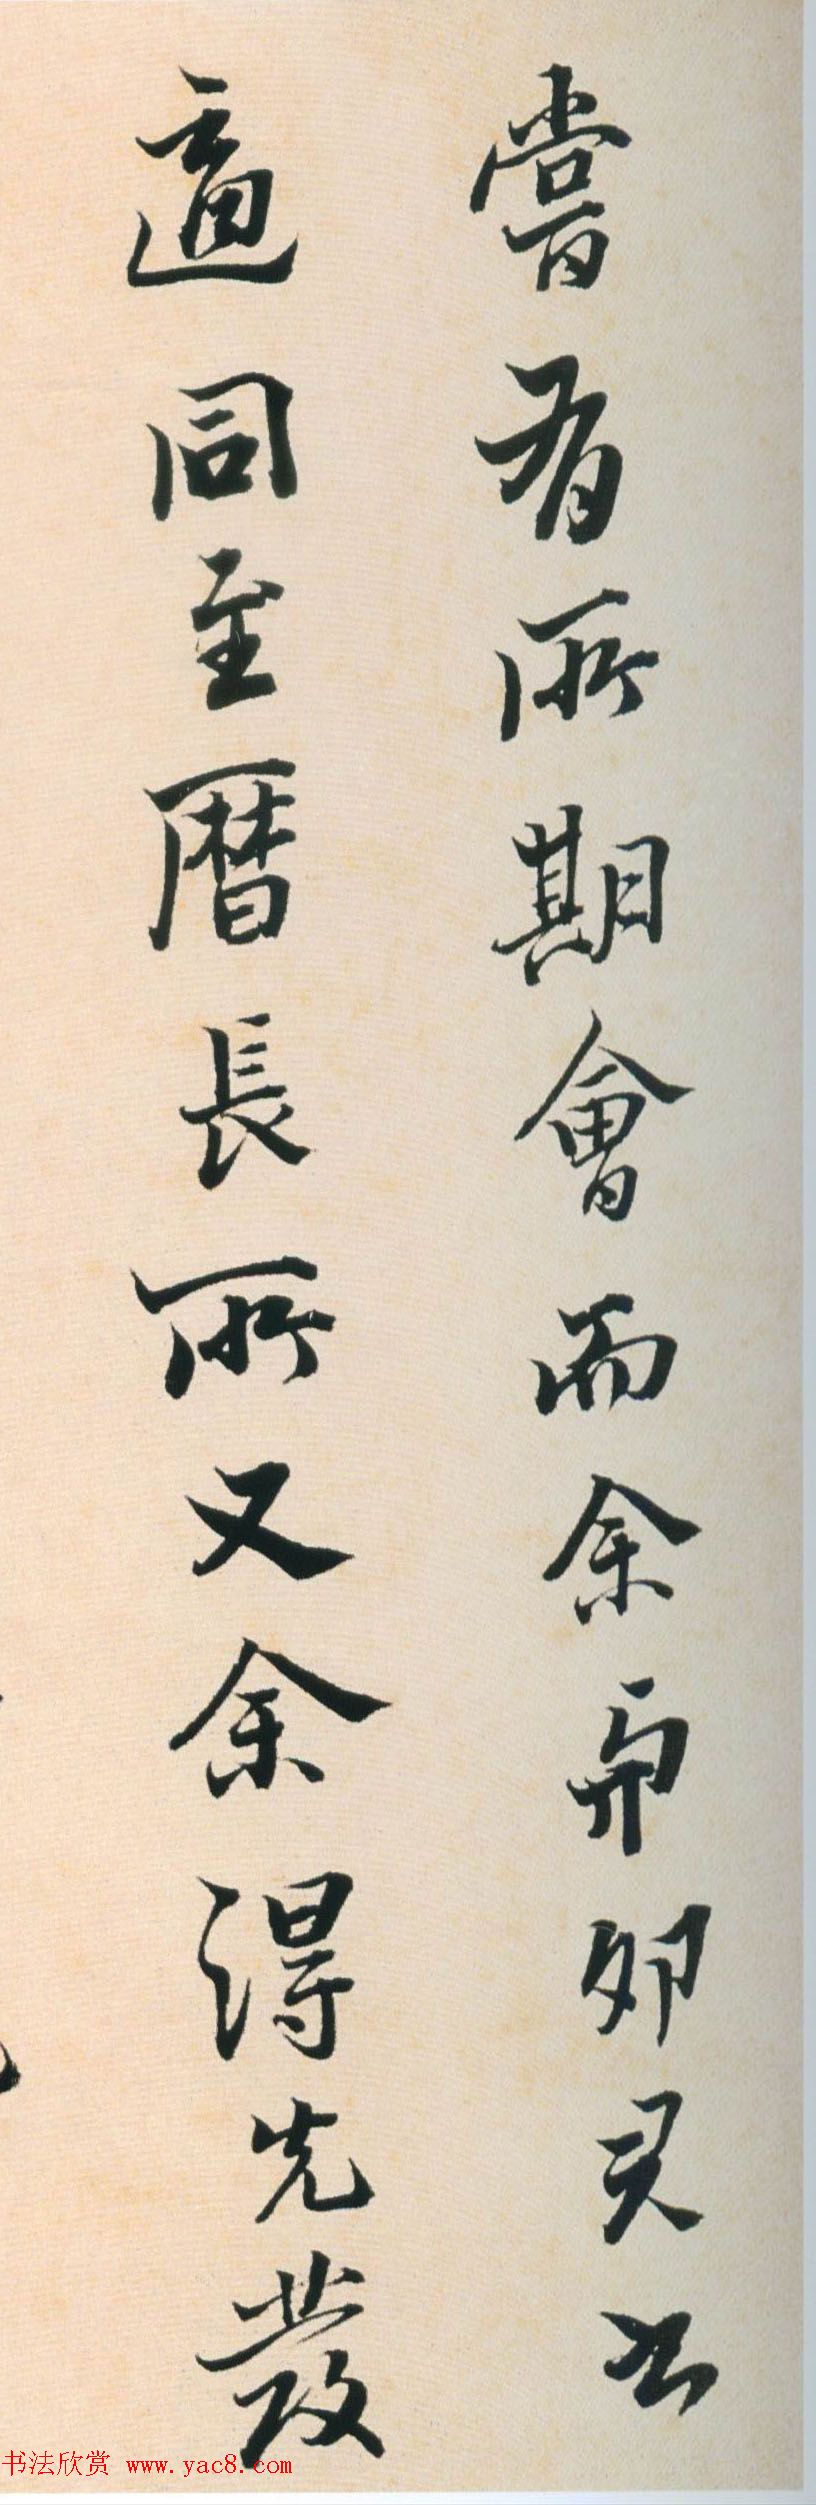 嘗有所期會而余卯
適同至暦長所又余得先發
书法欣赏 www.yac8.com